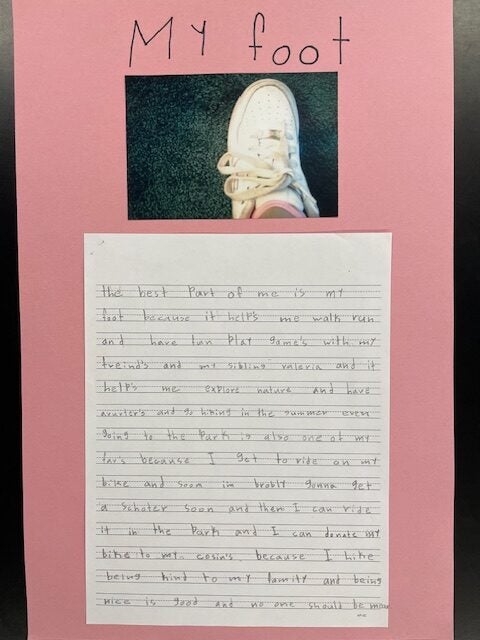 My foot
the best part of me is my
foot because it help's me walk run
and have fun play game's with my
freind's and my sibling valeria and it
help's me explore nature and have
and go hiking in the summer even
going to the park is also one of my
fav's because I get to ride on my
bike and soon im brobly gonna get
a schoter soon and then I can ride
it in the park and I can donate my
bike to my cosin's because I like
being kind to my family and being
nice is good and no one should be mean